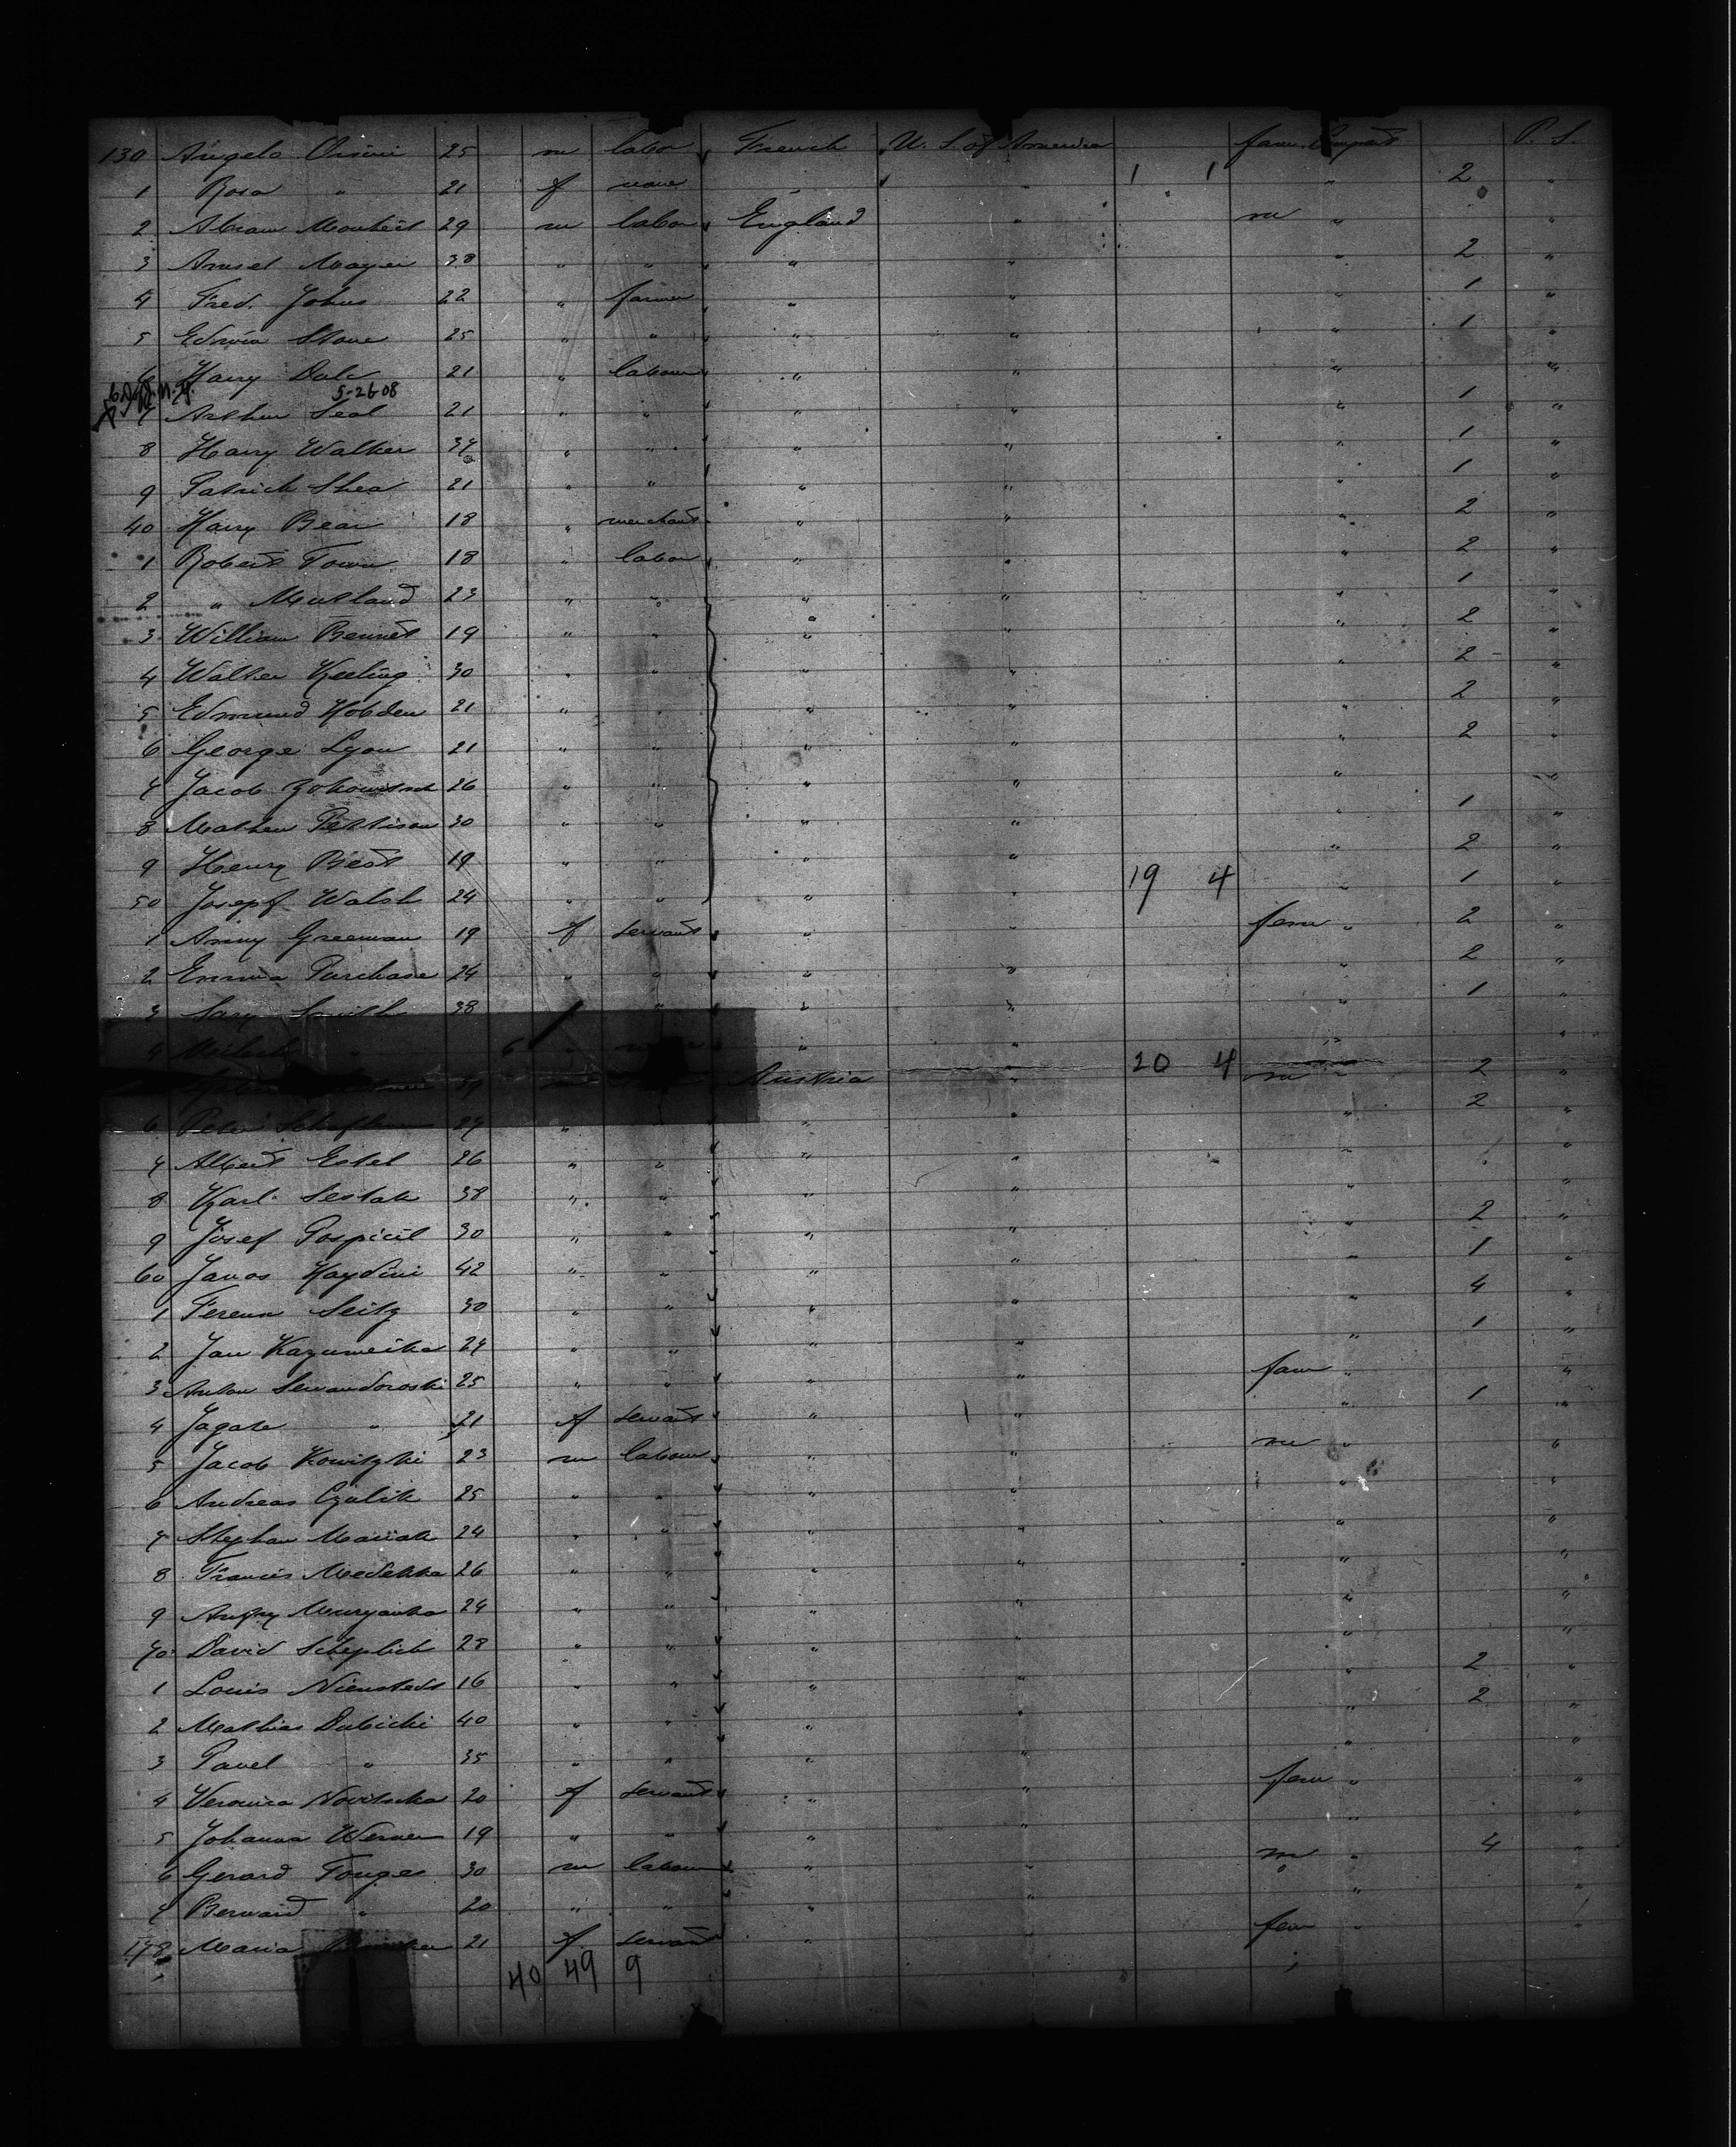 130 Angelo Orsini 25 m labor French U. S. of America fam. Compart P. S.
1 Rosa " 21 f none " " 1 1 " 2 "
2 Abram 29 m labor England " m " "
3 Amsel Mayer 38 " " " " " 2 "
4 Fred. Johns 22 " farmer " " " 1 "
5 Edwin Stone 25 " " " " " 1 "
6 Harry Dale 21 " labour " " " "
5-26-08
7 Arthur Seal 21 " " " " " 1 "
8 Harry Walker 34 " " " " " 1 "
9 Patrick Shea 21 " " " " " 1 "
40 Harry Bear 18 " merchant " " " 2 "
1 Robert Town 18 " labor " " " 2 "
2 " Mutland 23 " " " " " 1 "
3 William Bennet 19 " " " " " 2 "
4 Walter Keeling 30 " " " " " 2 "
5 Edmund Hobden 21 " " " " " 2 "
6 George Lyon 21 " " " " " 2 "
7 Jacob 26 " " " " " "
8 Mathew Pettison 30 " " " " " 1 "
9 Henry Best 19 " " " " " 2 "
50 Josepf Walsh 24 " " " " 19 4 " 1 "
1 Anny Greeman 19 f servant " " fem " 2 "
2 Emma Purchase 24 " " " " " 2 "
3 Sary Smith 38 " " " " " 1 "
4 " 6 " " " " "
Austria " 20 4 m " 2 "
6 Peter " " " " 2 "
7 Albert Estel 26 " " " " " "
8 Karl Sestak 38 " " " " " "
9 Josef Pospicil 30 " " " " " 2 "
60 Janos Haydini 42 " " " " " 1 "
1 Ferenn Seitz 30 " " " " " 4 "
2 Jan Kazumeika 24 " " " " " 1 "
3 Anton 25 " " " " fam " "
4 Jagate " 21 f servant " " " 1 "
5 Jacob Kowitzki 23 m labour " " m " "
6 Andreas Czulik 25 " " " " " "
7 Stephan Maciak 24 " " " " " "
8 Francis Medekka 26 " " " " " "
9 Muryanka 24 " " " " " "
70 David Scheplich 28 " " " " " "
1 Louis Nienstedt 16 " " " " " 2 "
2 Mathias Dubicki 40 " " " " " 2 "
3 Pavel " 35 " " " " " "
4 Veronica Novitscka 20 f servant " " fem " "
5 Johanna Werner 19 " " " " " "
6 Gerard Fonger 30 m labour " " m " 4 "
7 Bernard " 20 " " " " " "
178 Maria 21 f servant " fem " "
40 49 9